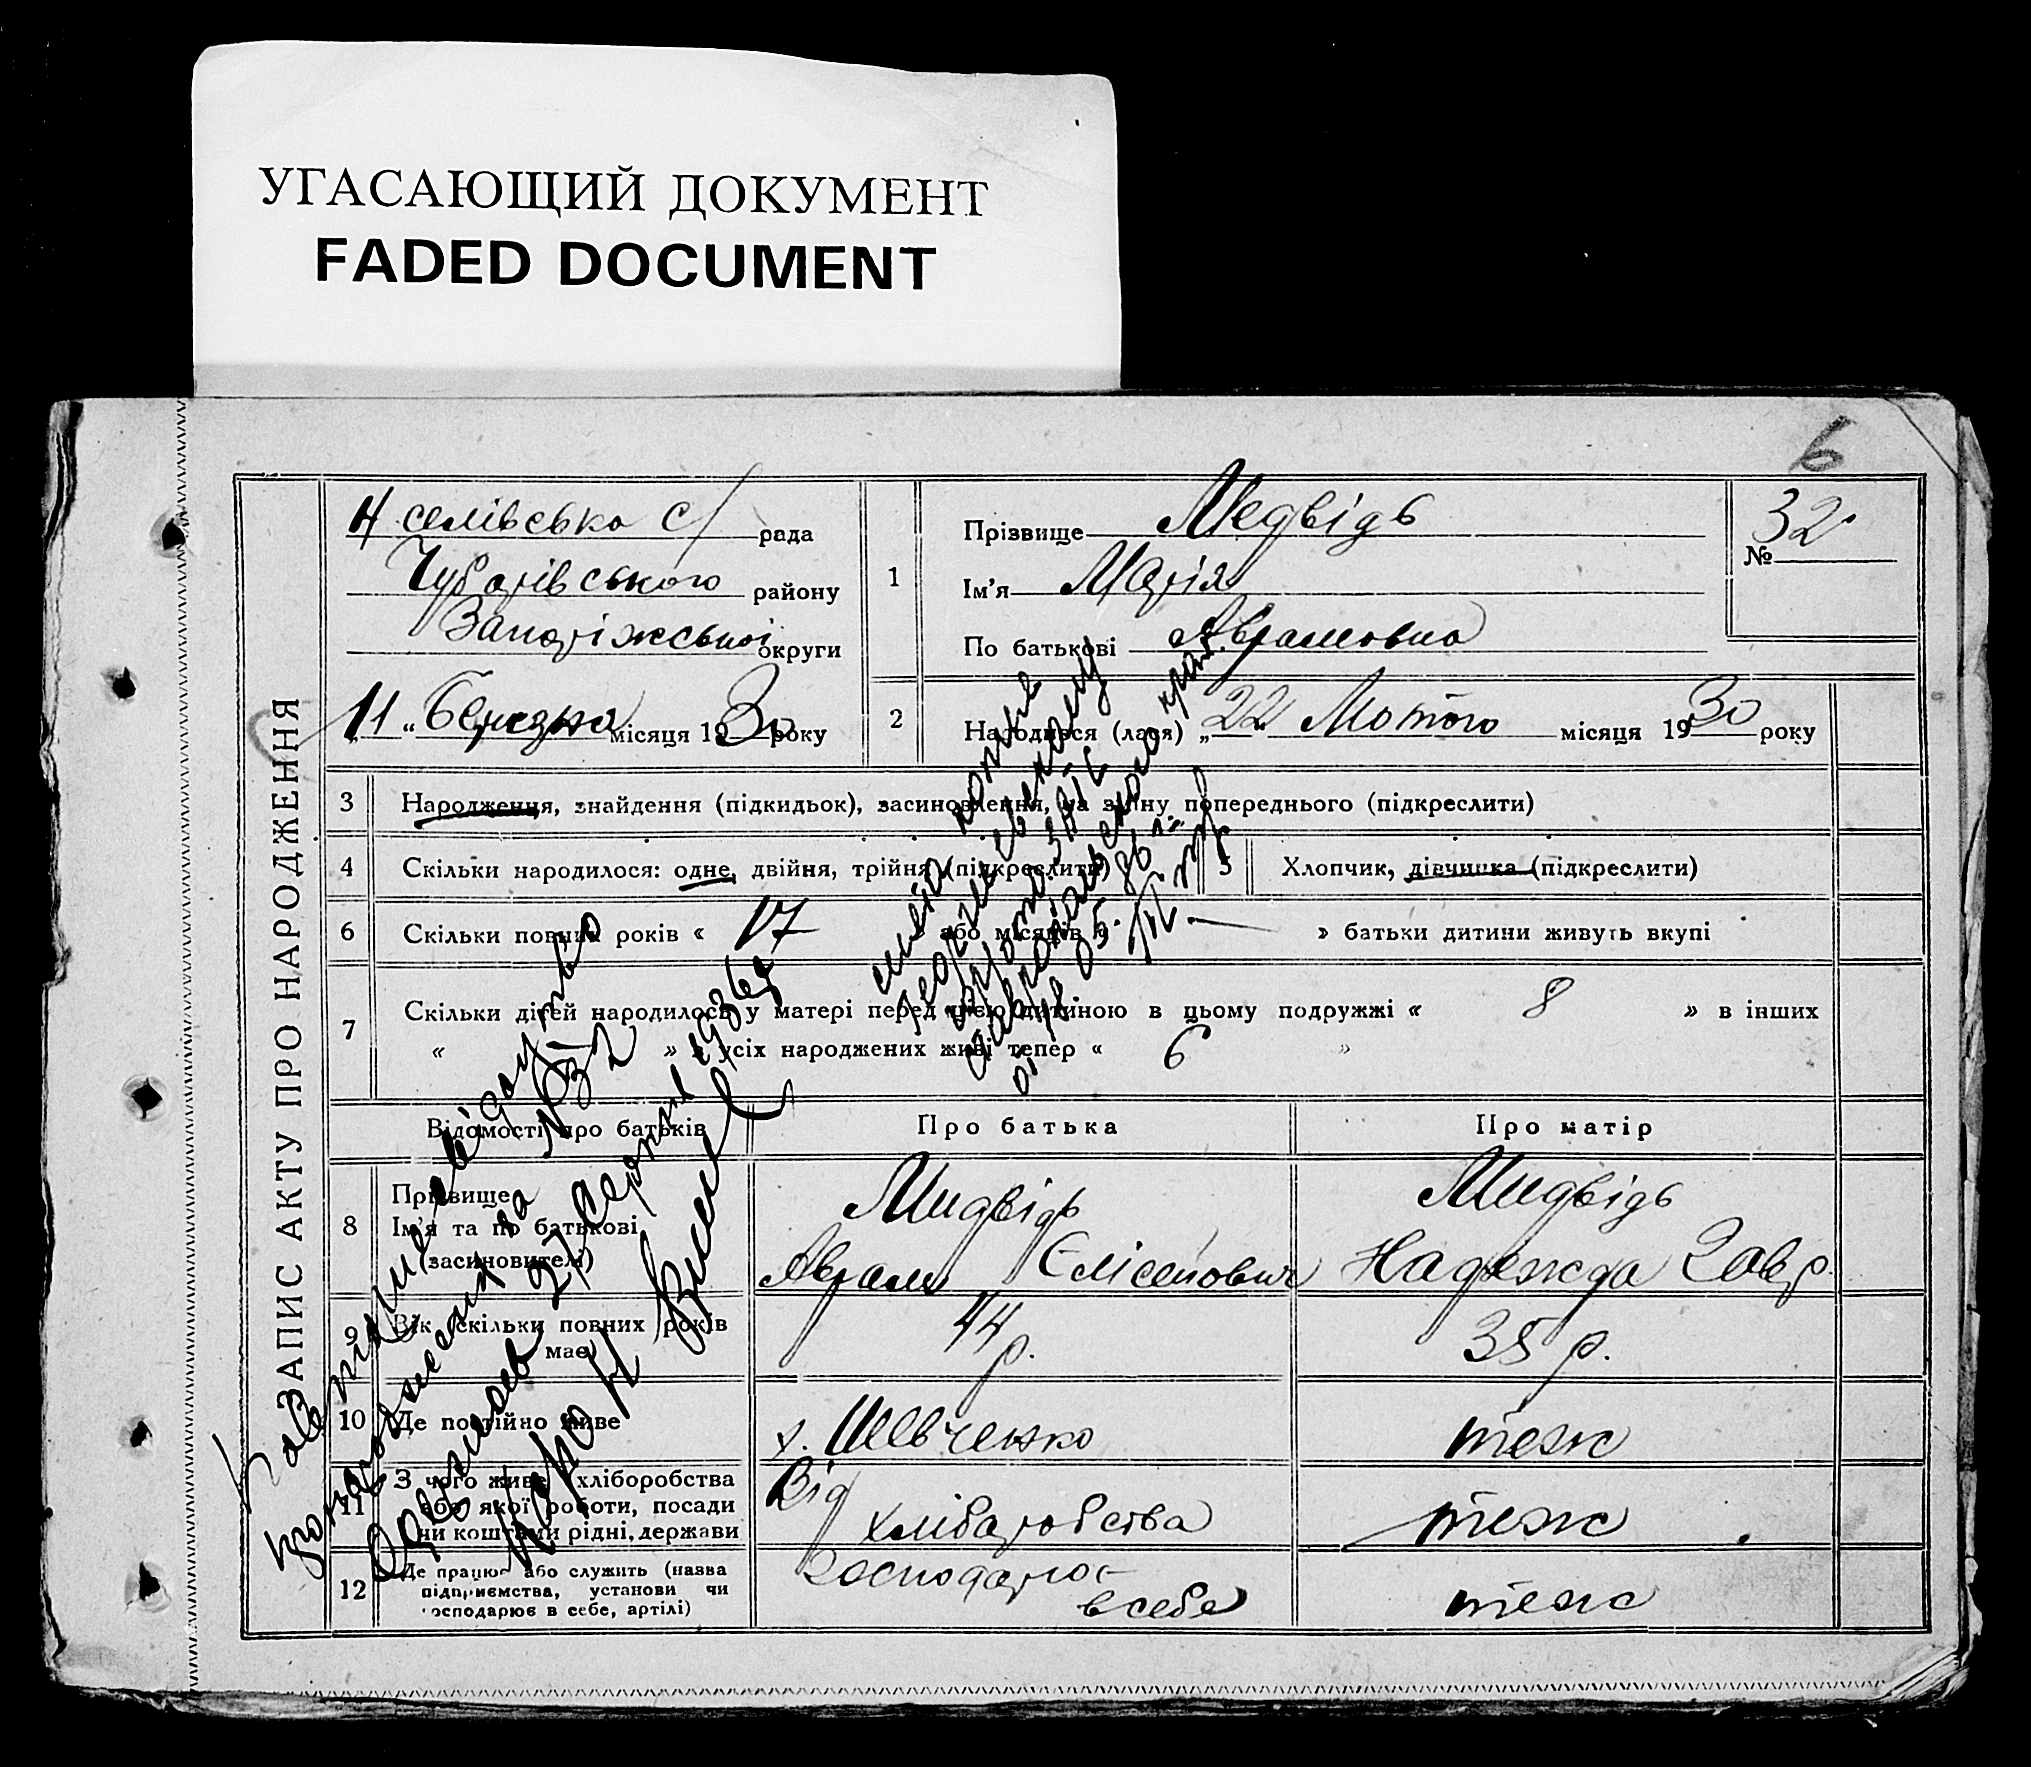 УГАСАЮЩИЙ ДОКУМЕНТ
FADED DOCUMENT
6
ЗАПИС АКТУ ПРО НАРОДЖЕННЯ
Н селівсько с/ рада
Чубарівського району
Запоріжської округи
„11“ Березня місяця 1930 року
1
Прізвище Медвідь
Ім’я Марія
По батькові Аврамовна
№ 32
2
Народився (лася) „22“ Лютого місяця 1930 року
3 Народження, знайдення (підкидьок), засиновлення, на зміну попереднього (підкреслити)
4 Скільки народилося: одне, двійня, трійня (підкреслити)
5 Хлопчик, дівчинка (підкреслити)
6 Скільки повних років « 17 або місяців « — » батьки дитини живуть вкупі
7 Скільки дітей народилось у матері перед цією дитиною в цьому подружжі « 8 » в інших
« » з усіх народжених живі тепер « 6 »
Відомості про батьків
Про батька
Про матір
8 Прізвище
Ім’я та по батькові
(засиновителі)
Мидвідь
Аврам Єлісейович
Мидвідь
Надежда Гавр.
9 Вік скільки повних років
має)
44 р.
35 р.
10 Де постійно живе
х. Шевченко
теж
11 З чого живе хліборобства
або якої роботи, посади
чи коштами рідні, держави
Від
хліборобства
теж
12 Де працює або служить (назва
підприємства, установи чи
господарює в себе, артілі)
господарює
в себе
теж
№ 32
27 Серпня 1936 р